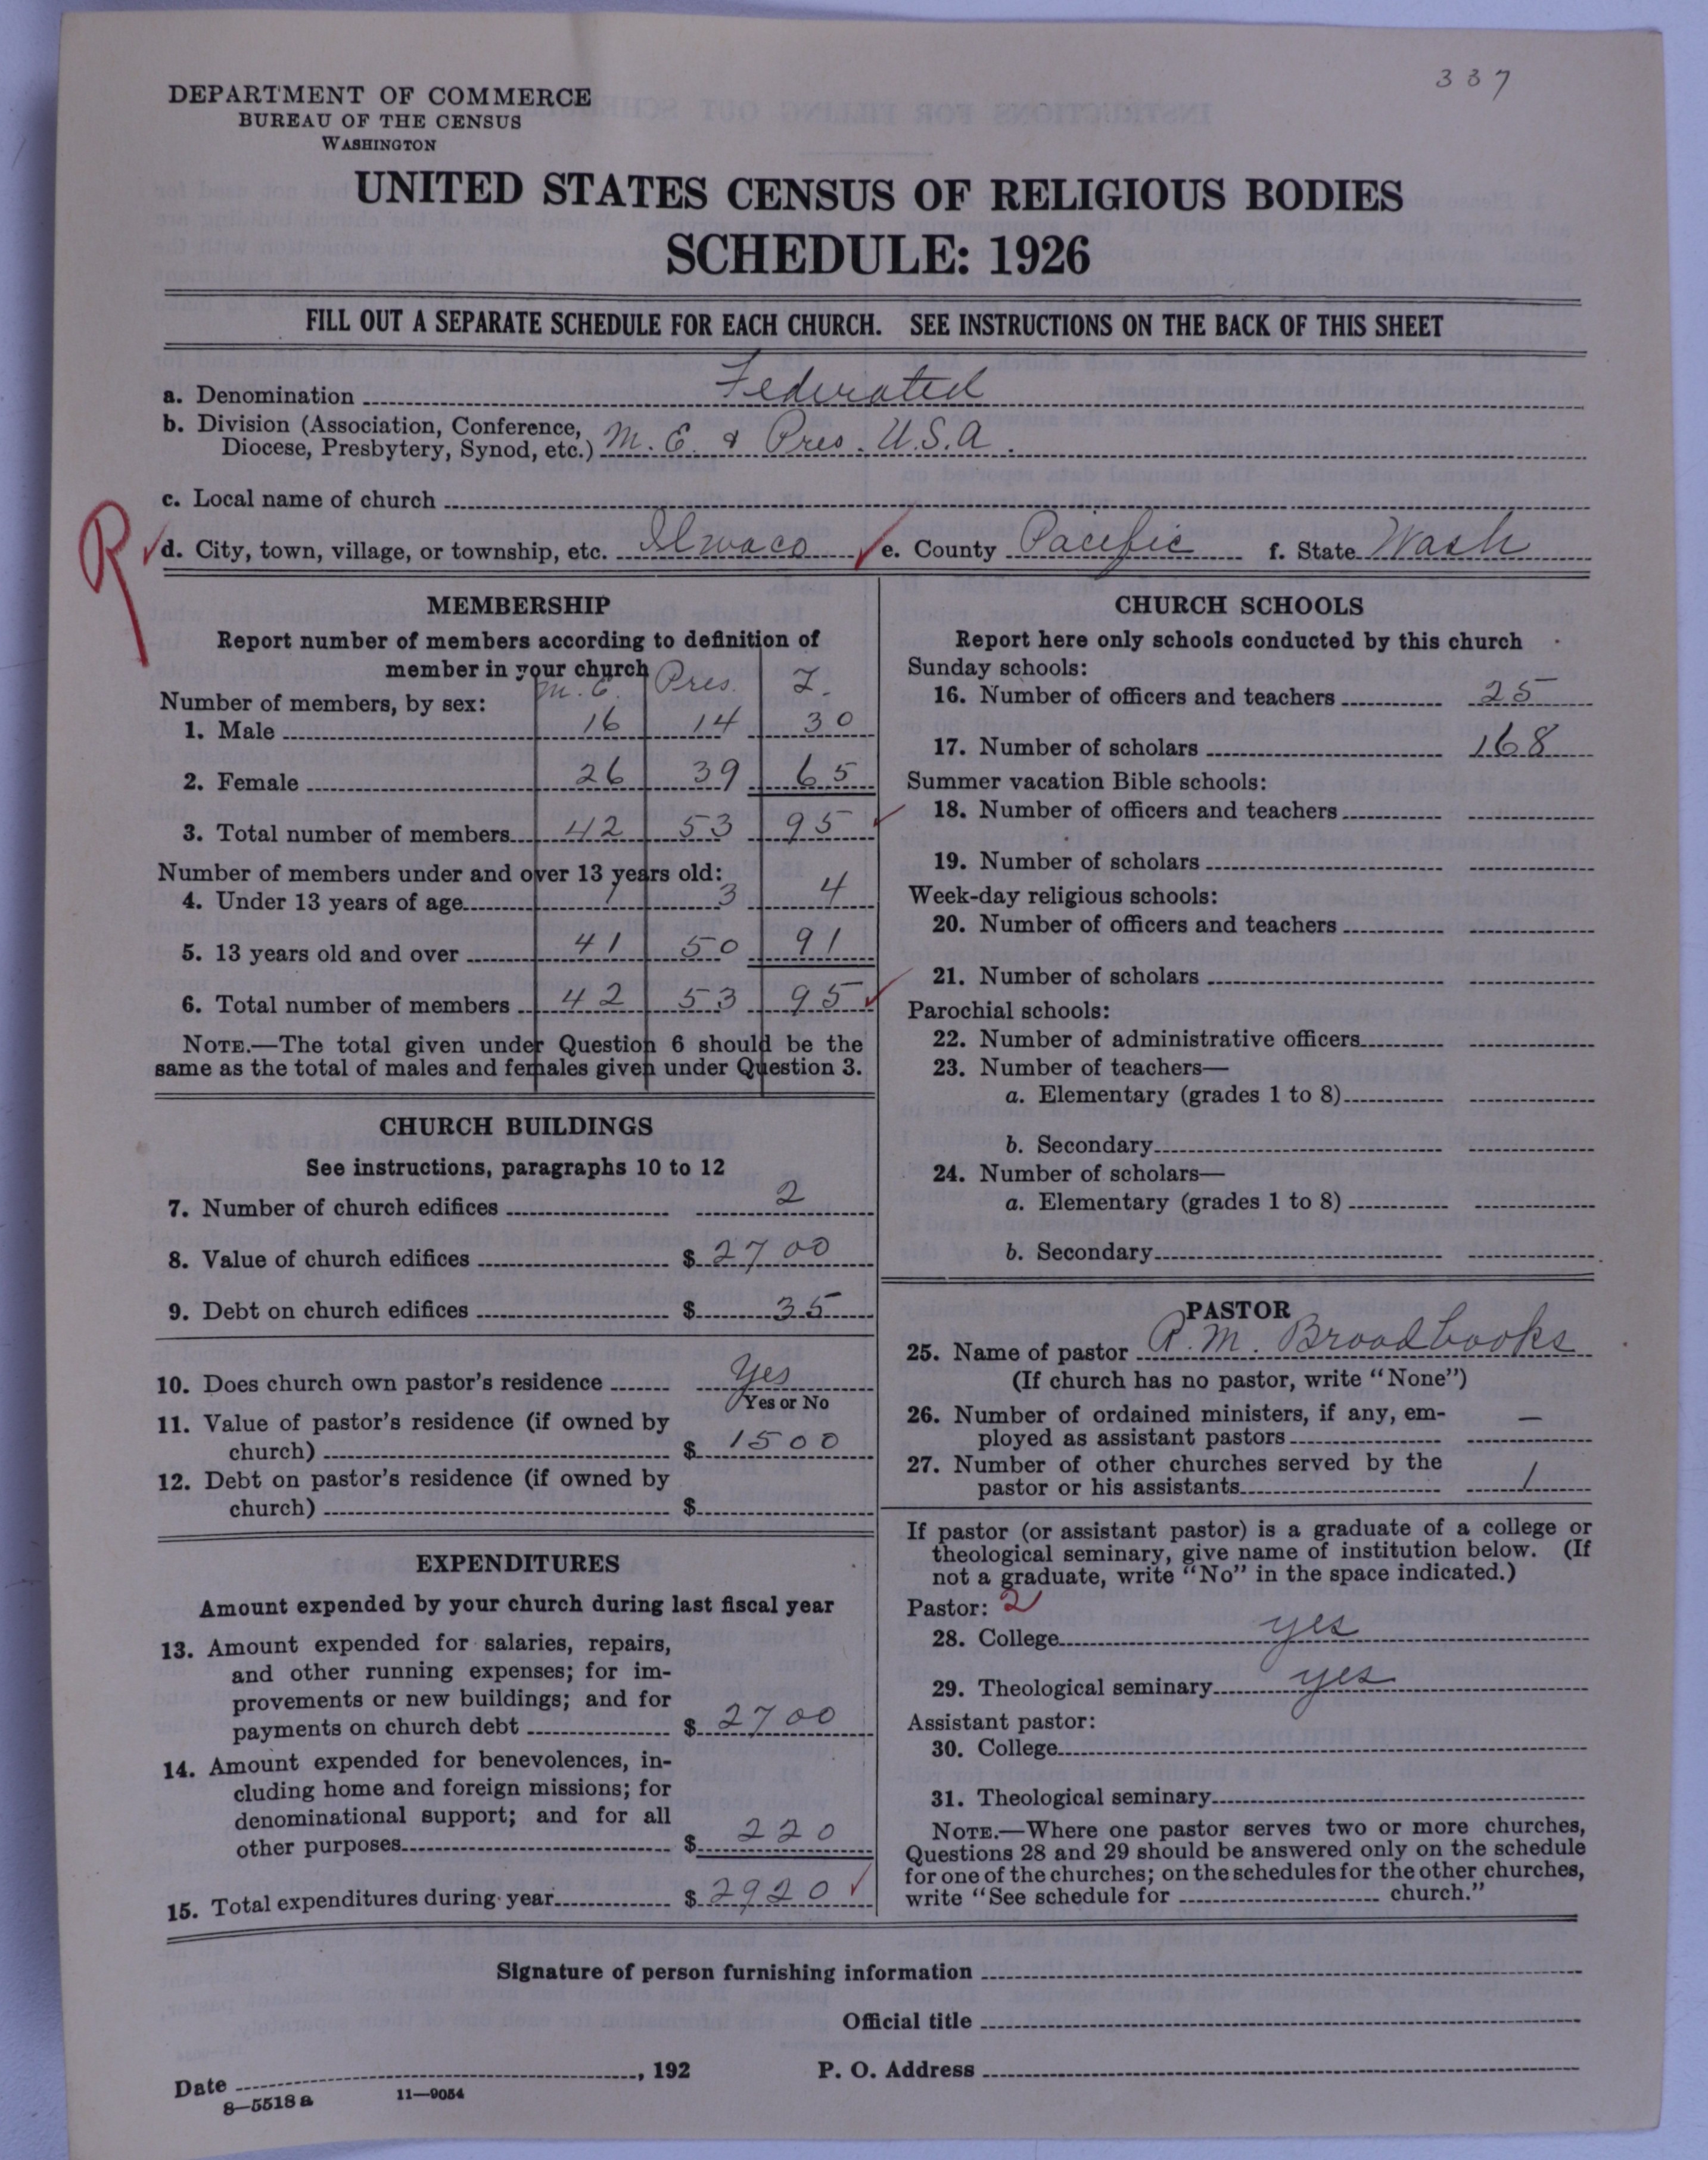 337
DEPARTMENT OF COMMERCE
BUREAU OF THE CENSUS
WASHINGTON
UNITED STATES CENSUS OF RELIGIOUS BODIES
SCHEDULE: 1926
FILL OUT A SEPARATE SCHEDULE FOR EACH CHURCH. SEE INSTRUCTIONS ON THE BACK OF THIS SHEET
a. Denomination Federated
b. Division (Association, Conference,
Diocese, Presbytery, Synod, etc.) M. E. & Pres. U.S.A.
c. Local name of church
R
d. City, town, village, or township, etc. Ilwaco e. County Pacific f. State Wash
MEMBERSHIP
Report number of members according to definition of
member in your church
M. E. Pres. T.
Number of members, by sex:
1. Male 16 14 30
2. Female 26 39 65
3. Total number of members 42 53 95
Number of members under and over 13 years old:
4. Under 13 years of age 1 3 4
5. 13 years old and over 41 50 91
6. Total number of members 42 53 95
NOTE.—The total given under Question 6 should be the
same as the total of males and females given under Question 3.
CHURCH BUILDINGS
See instructions, paragraphs 10 to 12
7. Number of church edifices 2
8. Value of church edifices $ 2700
9. Debt on church edifices $ 35
10. Does church own pastor's residence Yes
Yes or No
11. Value of pastor's residence (if owned by
church) $ 1500
12. Debt on pastor's residence (if owned by
church) $
EXPENDITURES
Amount expended by your church during last fiscal year
13. Amount expended for salaries, repairs,
and other running expenses; for im-
provements or new buildings; and for
payments on church debt $ 2700
14. Amount expended for benevolences, in-
cluding home and foreign missions; for
denominational support; and for all
other purposes $ 220
15. Total expenditures during year $ 2920
CHURCH SCHOOLS
Report here only schools conducted by this church
Sunday schools:
16. Number of officers and teachers 25
17. Number of scholars 168
Summer vacation Bible schools:
18. Number of officers and teachers
19. Number of scholars
Week-day religious schools:
20. Number of officers and teachers
21. Number of scholars
Parochial schools:
22. Number of administrative officers
23. Number of teachers—
a. Elementary (grades 1 to 8)
b. Secondary
24. Number of scholars—
a. Elementary (grades 1 to 8)
b. Secondary
PASTOR
25. Name of pastor R. M. Broadbooks
(If church has no pastor, write "None")
26. Number of ordained ministers, if any, em-
ployed as assistant pastors —
27. Number of other churches served by the
pastor or his assistants 1
If pastor (or assistant pastor) is a graduate of a college or
theological seminary, give name of institution below. (If
not a graduate, write "No" in the space indicated.)
Pastor: 2
28. College yes
29. Theological seminary yes
Assistant pastor:
30. College
31. Theological seminary
NOTE.—Where one pastor serves two or more churches,
Questions 28 and 29 should be answered only on the schedule
for one of the churches; on the schedules for the other churches,
write "See schedule for church."
Signature of person furnishing information
Official title
Date , 192 P. O. Address
8—5518 a 11—9054